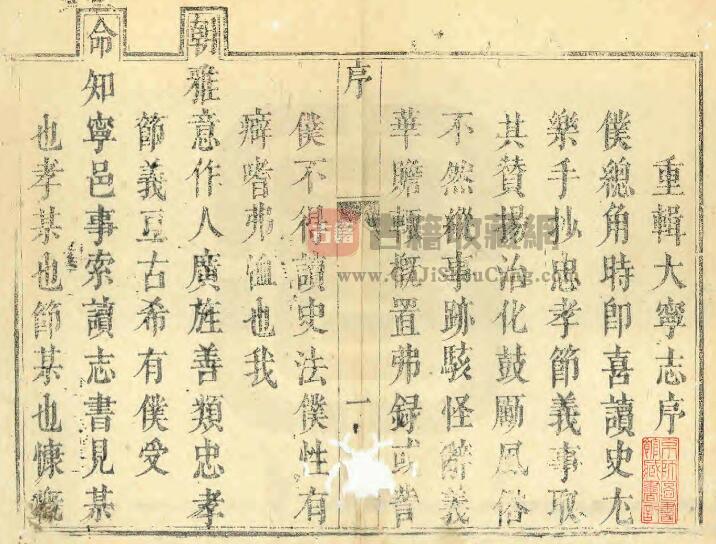 重輯大寧志序
僕總角時即喜讀史尤
樂手抄忠孝節義事取
其贊揚治化鼓勵風俗
不然縱事跡駭怪辭義
華贍頓概置弗録或訾
序
一
僕不得讀史法僕性有
癖嗜弗恤也我
朝雅意作人廣旌善類忠孝
節義亘古希有僕受
命知寧邑事索讀志書見某
也孝某也節某也慷慨
古籍收藏網
www.GuJiShouCang.com
京師圖書
館藏書章